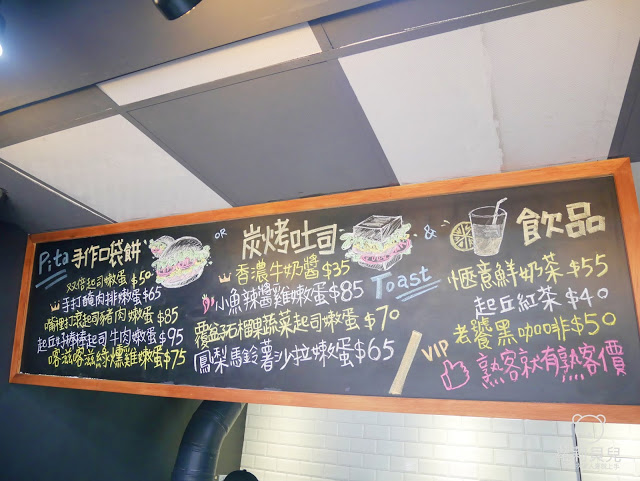 Pita 手作口袋餅
双倍起司嫩蛋 $50
手打醃肉排嫩蛋 $65
嘴裡打滾起司豬肉嫩蛋 $85
起丘好棒棒起司牛肉嫩蛋 $95
喀滋喀滋綺燻雞嫩蛋 $75
OR
炭烤吐司
Toast
香濃牛奶醬 $35
小魚辣醬雞嫩蛋 $85
覆盆石榴果蔬菜起司嫩蛋 $70
鳳梨馬鈴薯沙拉嫩蛋 $65
&
飲品
愜意鮮奶茶 $55
起丘紅茶 $40
老饕黑咖啡 $50
VIP
熟客就有熟客價